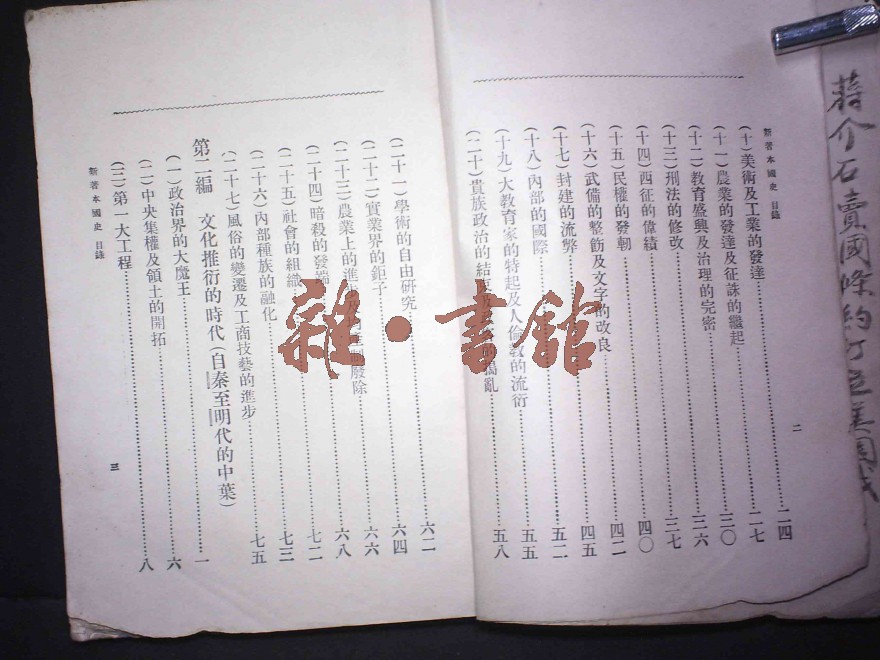 蔣介石賣國條約訂立美國
新著本國史 目錄
二
(十)美術及工業的發達……二四
(十一)農業的發達及征誅的繼起……二七
(十二)教育盛興及治理的完密……三〇
(十三)刑法的修改……三六
(十四)西征的偉績……三七
(十五)民權的發軔……四〇
(十六)武備的整飭及文字的改良……四二
(十七)封建的流弊……四五
(十八)內部的國際……五二
(十九)大教育家的特起及人倫教的流衍……五五
(二十)貴族政治的結果及的禍亂……五八
(二十一)學術的自由研究……六二
(二十二)實業界的鉅子……六四
(二十三)農業上的進步制廢除……六六
(二十四)暗殺的發端……六八
(二十五)社會的組織……七二
(二十六)內部種族的融化……七三
(二十七)風俗的變遷及工商技藝的進步……七五
第二編 文化推衍的時代(自秦至明代的中葉)
(一)政治界的大魔王……一
(二)中央集權及領土的開拓……六
(三)第一大工程……八
新著本國史 目錄
三
雜·書館